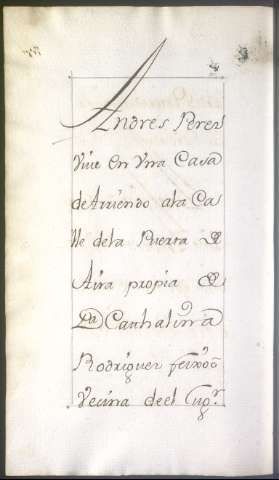 Andres Perez
Vive en vna Casa
de Arriendo ala Ca
lle dela Puerta de
Aira propia de
Da Cathalina
Rodriguez feixoo
Vecina deel Lugr.